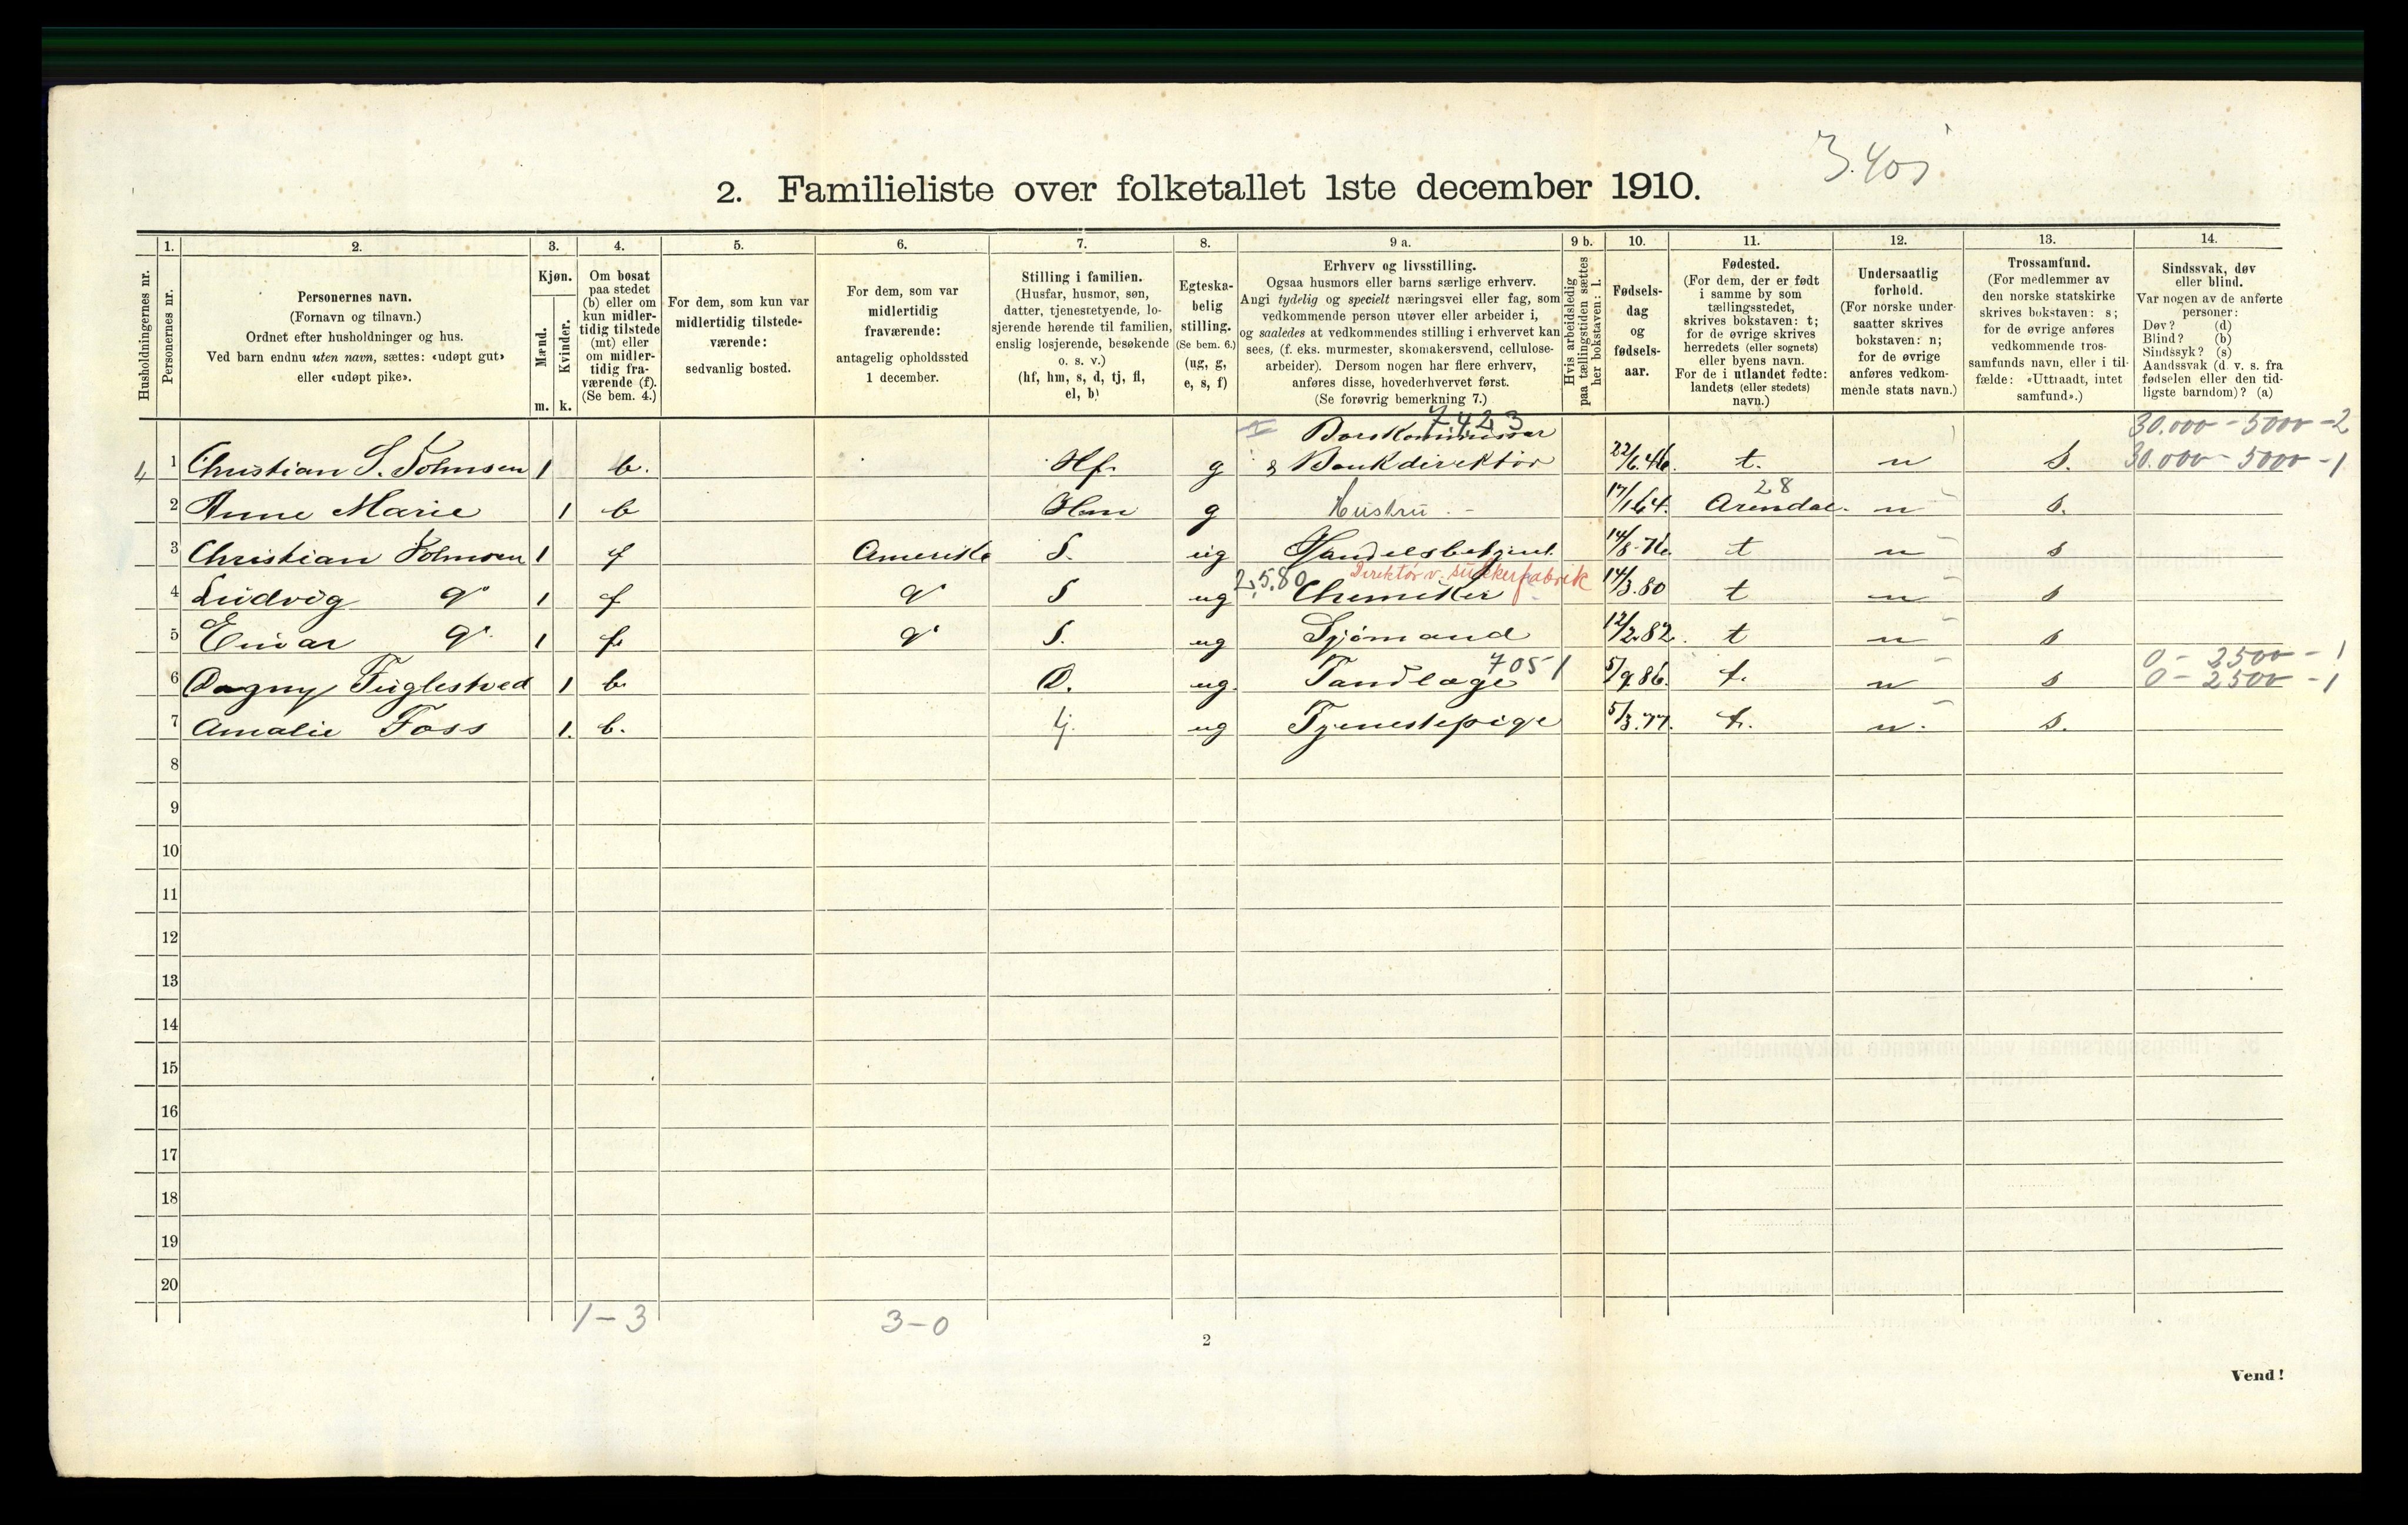 2. Familieliste over folketallet 1ste december 1910.
1. 2. 3. 4. 5. 6. 7. 8. 9 a. 9 b. 10. 11. 12. 13. 14.
Husholdningernes nr.
Personernes nr.
Personernes navn.
(Fornavn og tilnavn.)
Ordnet efter husholdninger og hus.
Ved barn endnu uten navn, sættes: «udøpt gut»
eller «udøpt pike».
Kjøn.
Mænd.
Kvinder.
m. k.
Om bosat
paa stedet
(b) eller om
kun midler-
tidig tilstede
(mt) eller
om midler-
tidig fra-
værende (f).
(Se bem. 4.)
For dem, som kun var
midlertidig tilstede-
værende:
sedvanlig bosted.
For dem, som var
midlertidig
fraværende:
antagelig opholdssted
1 december.
Stilling i familien.
(Husfar, husmor, søn,
datter, tjenestetyende, lo-
sjerende hørende til familien,
enslig losjerende, besøkende
o. s. v.)
(hf, hm, s, d, tj, fl,
el, b)
Egteska-
belig
stilling.
(Se bem. 6.)
(ug, g,
e, s, f)
Erhverv og livsstilling.
Ogsaa husmors eller barns særlige erhverv.
Angi tydelig og specielt næringsvei eller fag, som
vedkommende person utøver eller arbeider i,
og saaledes at vedkommendes stilling i erhvervet kan
sees, (f. eks. murmester, skomakersvend, cellulose-
arbeider). Dersom nogen har flere erhverv,
anføres disse, hovederhvervet først.
(Se forøvrig bemerkning 7.)
Hvis arbeidsledig
paa tællingstiden sættes
her bokstaven: l.
Fødsels-
dag
og
fødsels-
aar.
Fødested.
(For dem, der er født
i samme by som
tællingsstedet,
skrives bokstaven: t;
for de øvrige skrives
herredets (eller sognets)
eller byens navn.
For de i utlandet fødte:
landets (eller stedets)
navn.)
Undersaatlig
forhold.
(For norske under-
saatter skrives
bokstaven: n;
for de øvrige
anføres vedkom-
mende stats navn.)
Trossamfund.
(For medlemmer av
den norske statskirke
skrives bokstaven: s;
for de øvrige anføres
vedkommende tros-
samfunds navn, eller i til-
fælde: «Uttraadt, intet
samfund».)
Sindssvak, døv
eller blind.
Var nogen av de anførte
personer:
Døv? (d)
Blind? (b)
Sindssyk? (s)
Aandssvak (d. v. s. fra
fødselen eller den tid-
ligste barndom)? (a)
7423 30.000 - 5000 - 2
Børskommissær
4 1 Christian S. Tolmsen 1 b. Hf. g & Bankdirektör 22/6.46. t. n s. 30.000 - 5000 - 1
28
2 Anne Marie 1 b Hm g Hustru 17/1 64. Arendal. n s.
3 Christian Tolmsen 1 f Amerika S. ug Handelsbetjent 14/8-76. t n s
2,580 Direktør v. sukkerfabrik
4 Ludvig 1 f S ug Chemiker 14/3.80 t n s
5 Einar 1 f. S. ug Sjömand 12/2.82. t n s
7051 0 - 2500 - 1
6 Dagny Fuglestved 1 b. D. ug. Tandlæge 5/9 86. t. n s 0 - 2500 - 1
7 Amalie Foss 1. b. tj. ug Tjenestepige 5/3.77. t. n. s.
8
9
10
11
12
13
14
15
16
17
18
19
20
1-3 3-0
2
Vend!